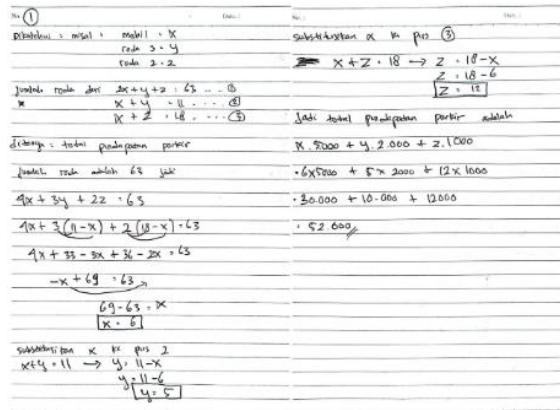 No. ①
Diketahui : misal : mobil = x
roda 3 = y
roda 2 = z
jumlah roda dari 2x+y+z = 63 .... ①
x + y = 11 .... ②
x + z = 18 .... ③
ditanya : total pendapatan parkir
jumlah roda adalah 63 jadi
4x + 3y + 2z = 63
4x + 3(11-x) + 2(18-x) = 63
4x + 33 - 3x + 36 - 2x = 63
-x + 69 = 63
69 - 63 = x
x = 6
substitusikan x ke pers 2
x+y = 11 → y = 11-x
y = 11-6
y = 5
substitusikan x ke pers ③
x + z = 18 → z = 18-x
z = 18-6
z = 12
Jadi total pendapatan parkir adalah
x . 5000 + y . 2.000 + z . 1000
= 6x5000 + 5 x 2000 + 12 x 1000
= 30.000 + 10.000 + 12000
= 52.000